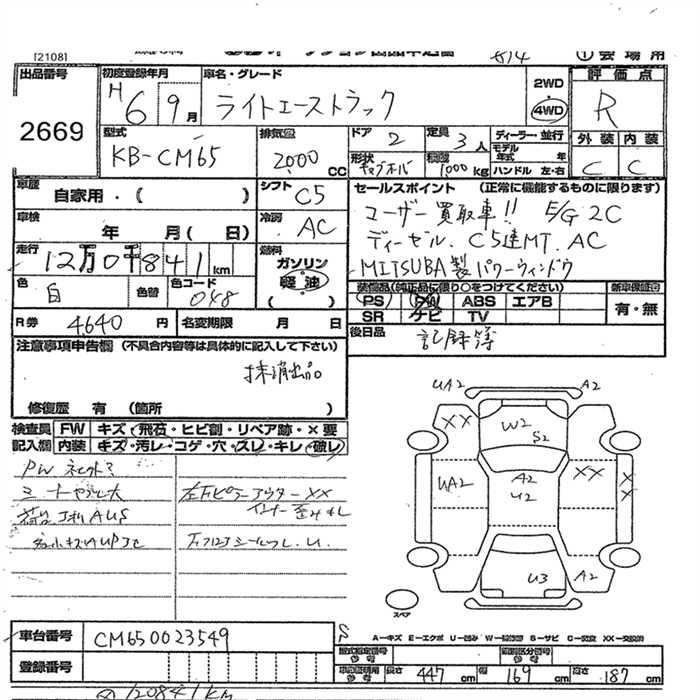 [2108]
①会場用
出品番号 初度登録年月 車名・グレード 2WD 評価点
2669
H6年9月 ライトエーストラック 4WD R
型式 排気量 ドア 2 定員 3人 ディーラー・並行 外装 内装
KB-CM65 2000CC 形状 積載 1000kg モデル年式 年 ハンドル 左・右 C C
車歴 自家用・( ) シフト C5 セールスポイント (正常に機能するものに限ります)
車検 年 月(日) 冷房 AC
ユーザー買取車!! E/G 2C
ディーゼル. C5速MT. AC
MITSUBA製パワーウィンドウ
走行 12万0千841km 燃料 ガソリン 軽油 ( )
色 白 色替 色コード 048
装備品(純正品に限り○をつけてください) 新車保証書
PS PW ABS エアB 有・無
SR ナビ TV
R券 4640円 名変期限 月 日
後日品 記録簿
注意事項申告欄 (不具合内容等は具体的に記入して下さい)
抹消出品
修復歴 有 (箇所 )
検査員 FW キズ・飛石・ヒビ割・リペア跡・×要
記入欄 内装 キズ・汚レ・コゲ・穴・スレ・キレ・破レ
UA2 A2
XX W2 S2
UA2 A2 U2 XX XX
U3 A2
スペア
車台番号 CM65 0023549
A-キズ E-エクボ U-凹み W-補修跡 S-サビ C-腐食 XX-交換済
登録番号
型式指定番号 参考 類別区分番号 参考
車体証明用 参考 長さ 447cm 幅 169cm 高さ 187cm
120841km